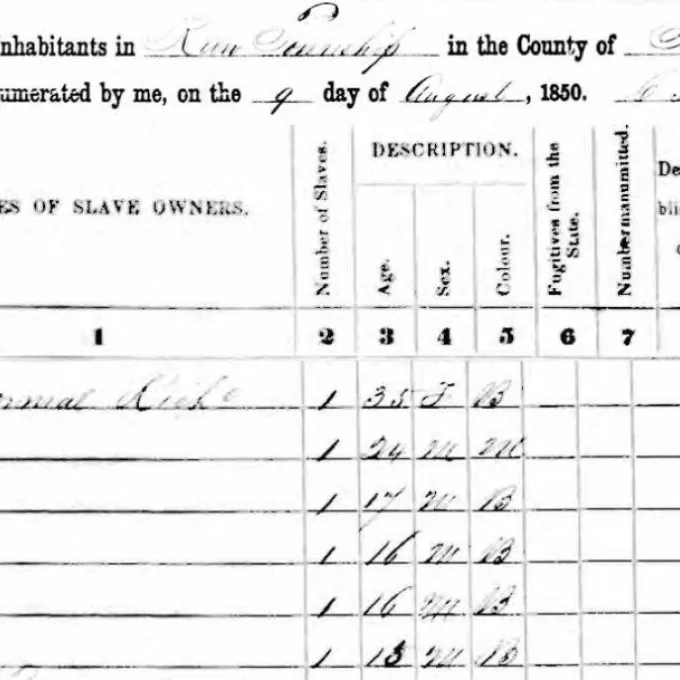 nhabitants in Township in the County of
umerated by me, on the 9 day of August, 1850.
ES OF SLAVE OWNERS.
Number of Slaves.
DESCRIPTION.
Age.
Sex.
Colour.
Fugitives from the State.
Number manumitted.
De
bli
1 2 3 4 5 6 7
1 35 F B
1 24 M M
1 17 M B
1 16 M B
1 16 M B
1 13 M B